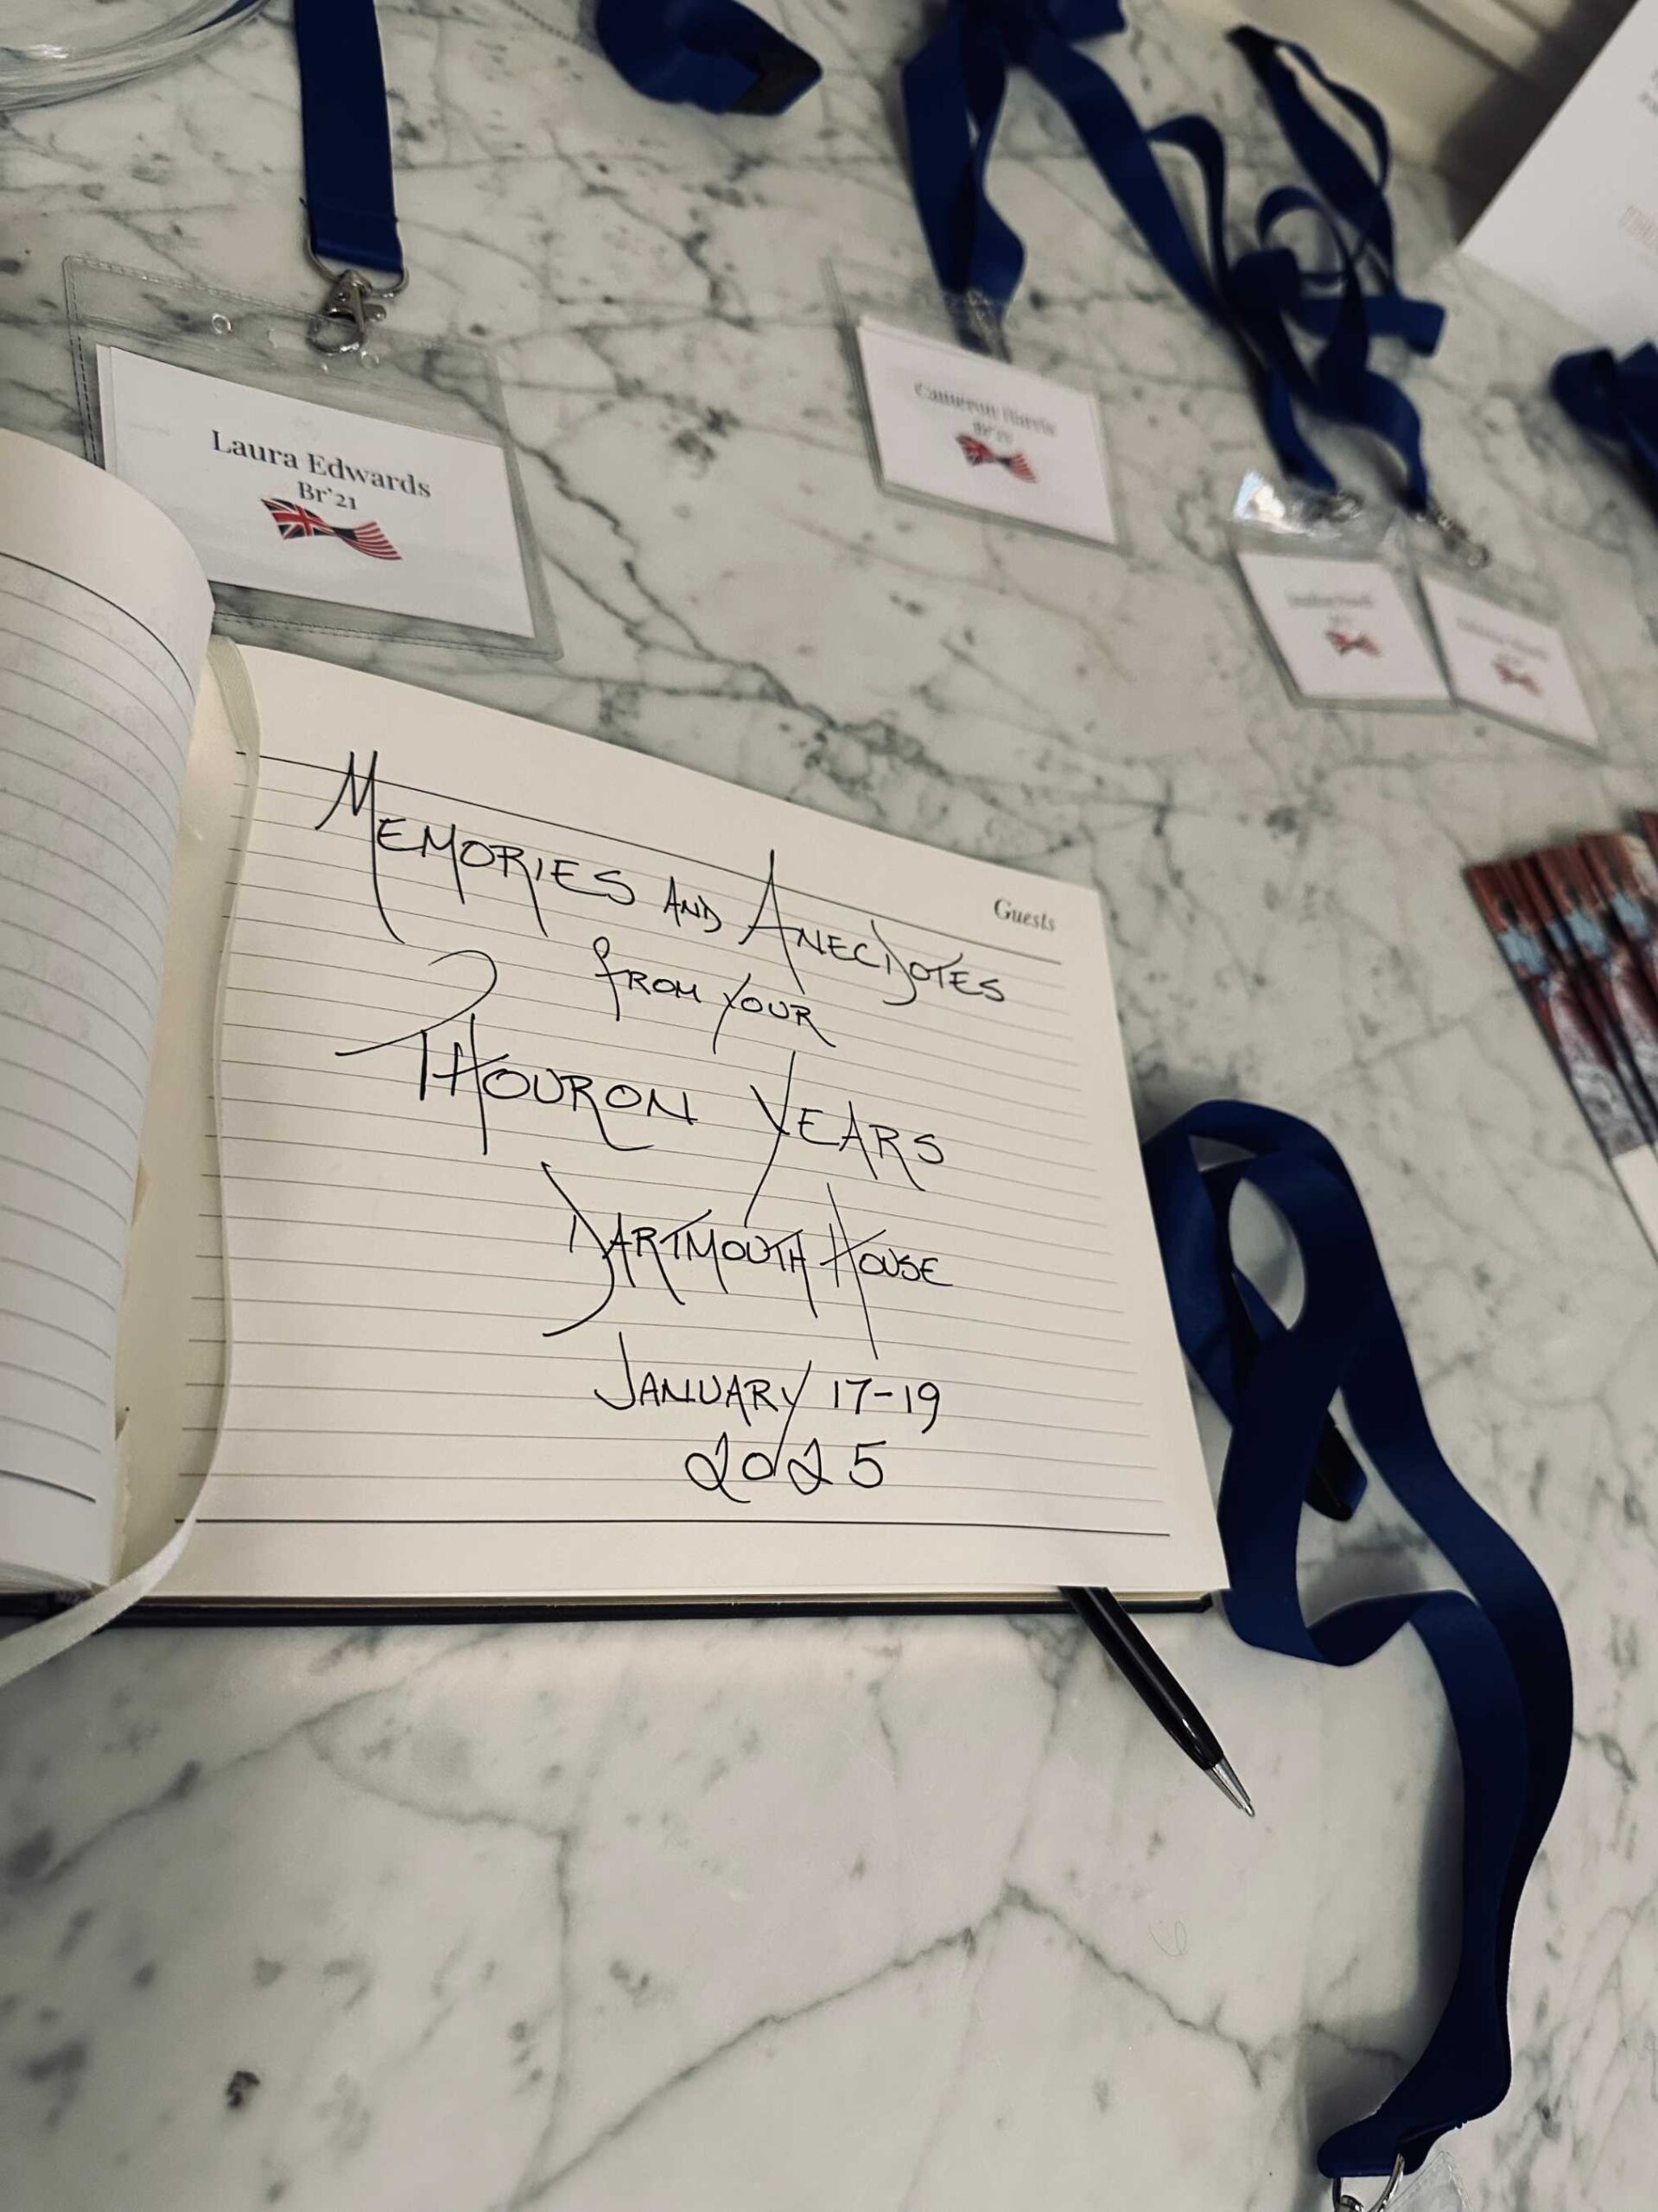 Laura Edwards
Br'21
Cameron Harris
Guests
MEMORIES AND ANECDOTES
FROM YOUR
THOURON YEARS
DARTMOUTH HOUSE
JANUARY 17-19
2025